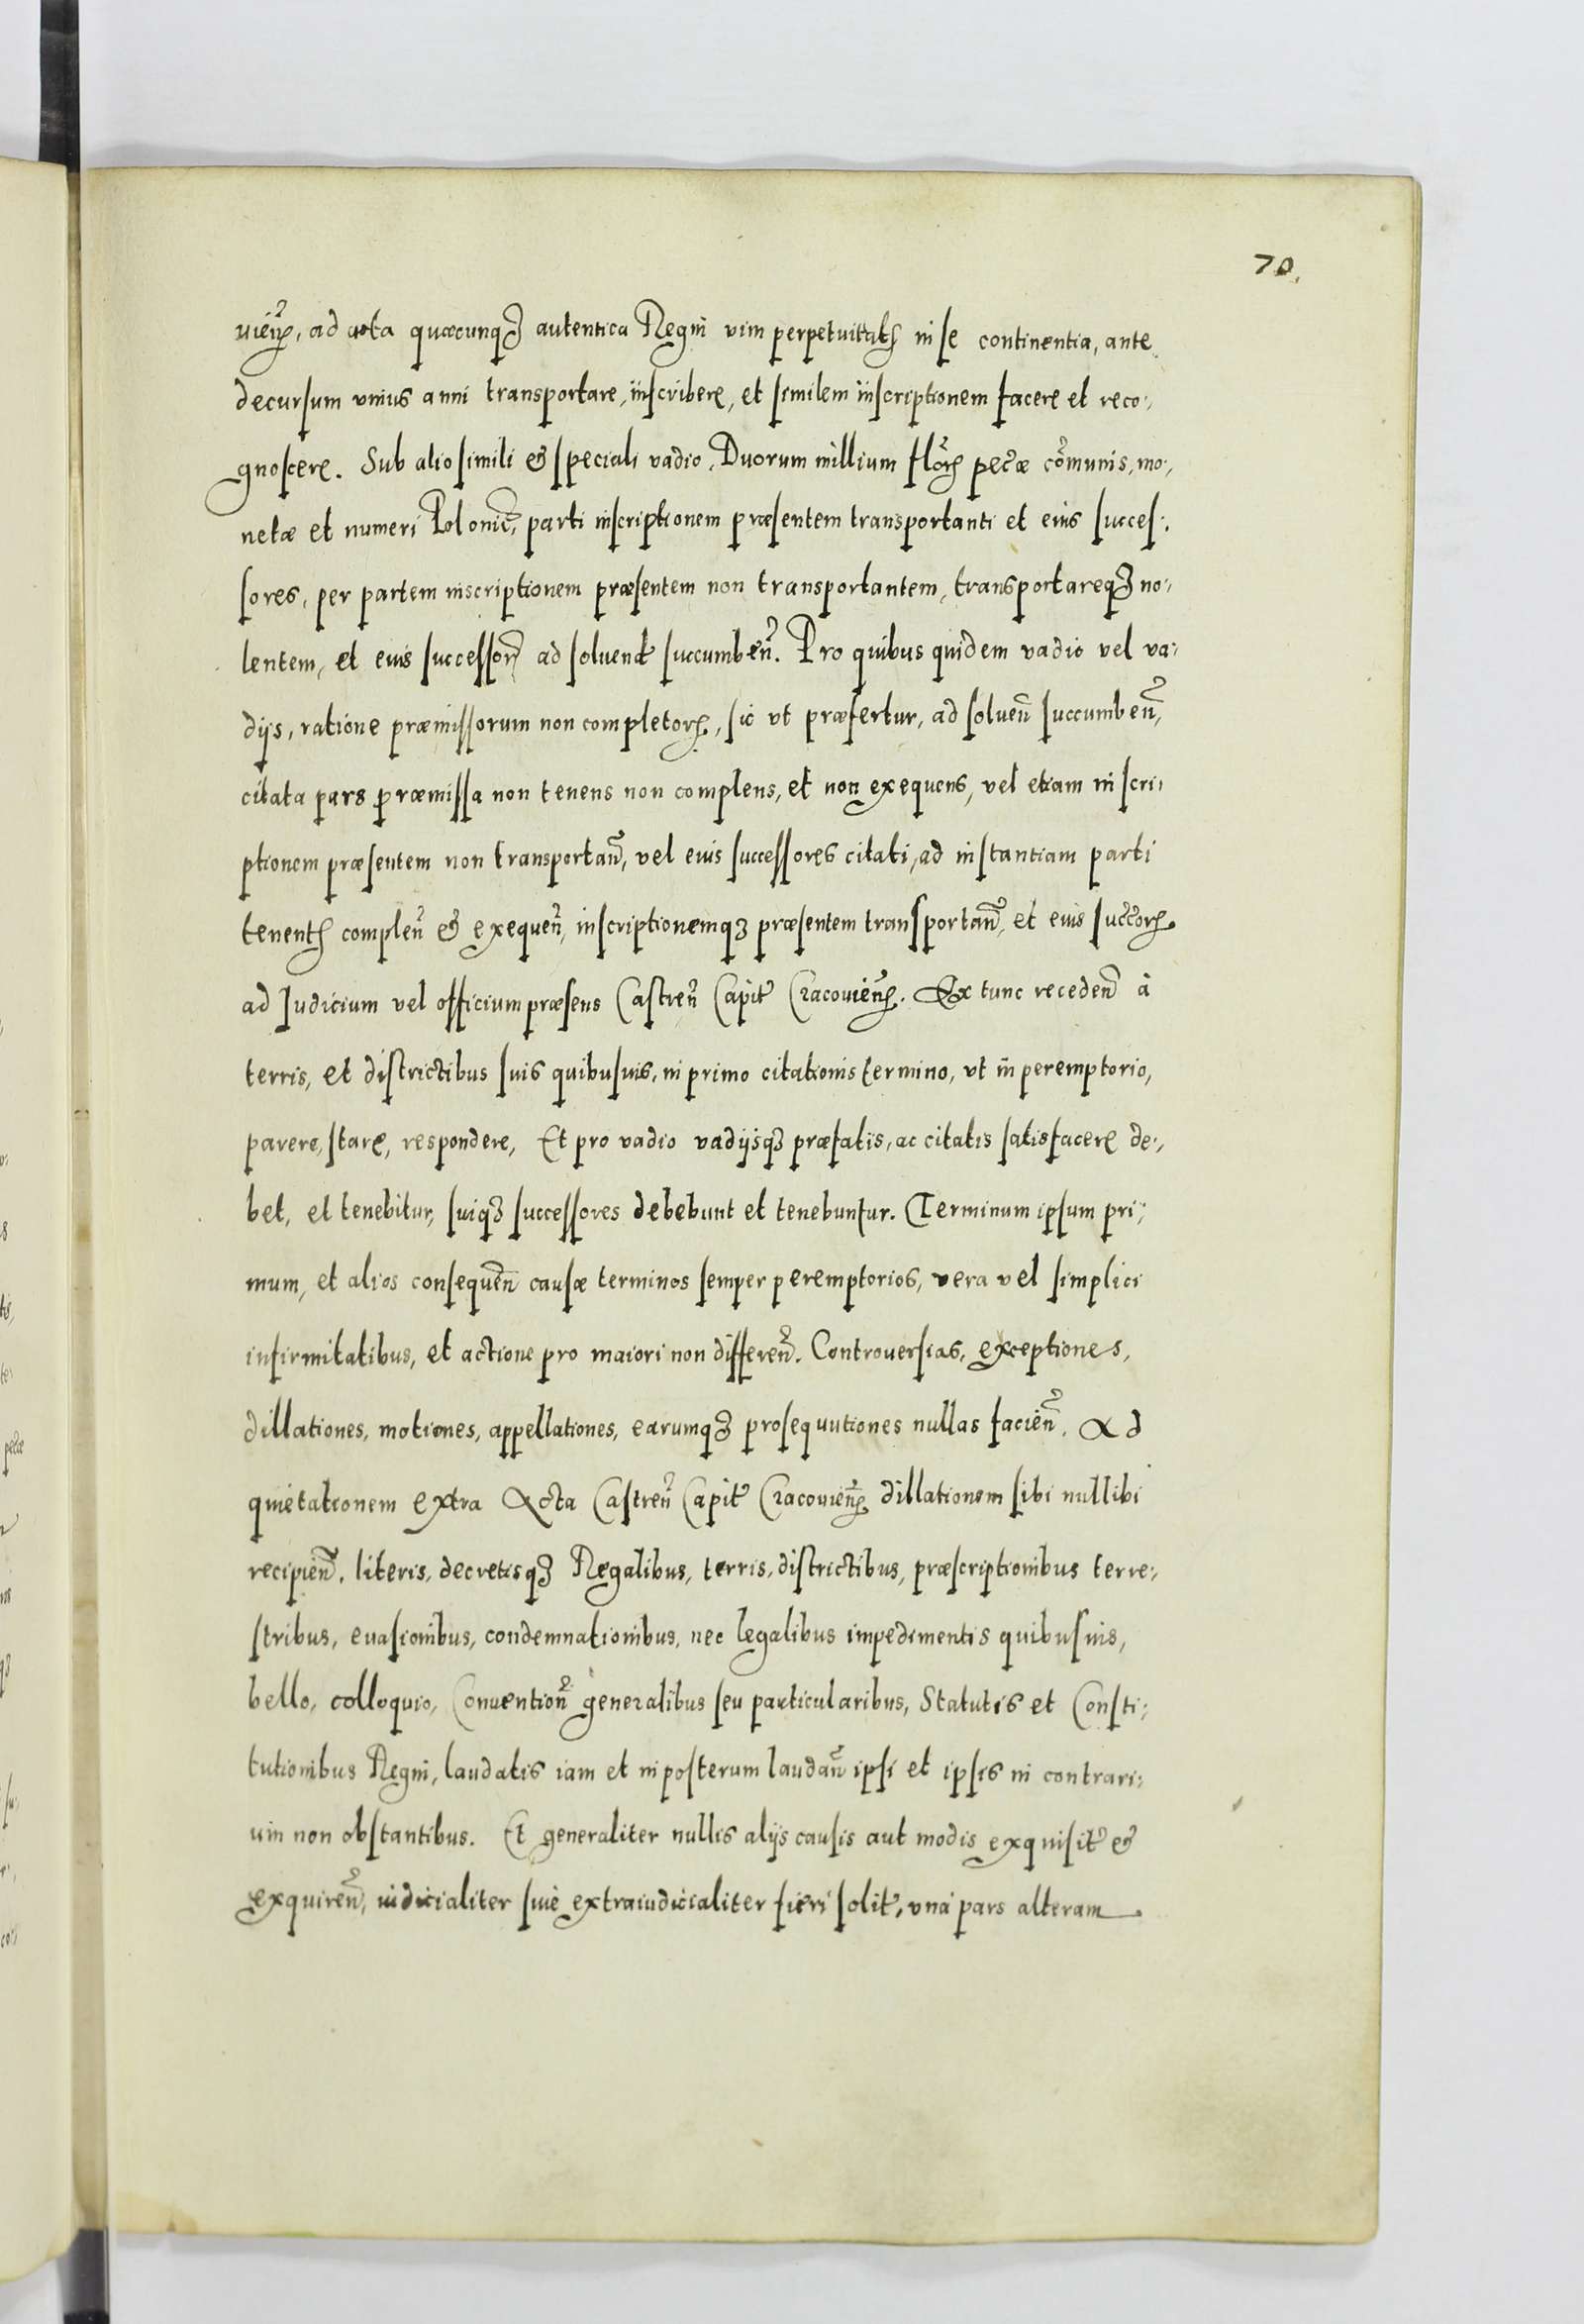 70.
uień, ad acta quæcunqꝫ autentica Regni vim perpetuitatꝭ in se continentia, ante
decursum vnius anni transportare, inscribere, et similem inscriptionem facere et reco-
gnoscere. Sub alio simili & speciali vadio, Duorum millium florꝭ pecæ cõmunis, mo-
netæ et numeri Polonic, parti inscriptionem præsentem transportanti et eius succes-
sores, per partem inscriptionem præsentem non transportantem, transportareqꝫ no-
lentem, et eius successorꝭ ad soluend succumben̄. Pro quibus quidem vadio vel va-
dijs, ratione præmissorum non completorꝭ, sic vt præfertur, ad soluen̄ succumben̄,
citata pars præmissa non tenens non complens, et non exequens, vel etiam inscri-
ptionem præsentem non transportan̄, vel eius successores citati, ad instantiam parti
tenentꝭ complen̄ & exequen̄, inscriptionemqꝫ præsentem transportan̄, et eius succorꝭ
ad Judicium vel officium præsens Castren̄ Capit Cracouien̄. Ex tunc receden̄ à
terris, et districtibus suis quibusuis, in primo citationis termino, vt in peremptorio,
parere, stare, respondere, Et pro vadio vadijsqꝫ præfatis, ac citatis satisfacere de-
bet, et tenebitur, suiqꝫ successores debebunt et tenebuntur. Terminum ipsum pri-
mum, et alios consequen̄ causæ terminos semper peremptorios, vera vel simplici
infirmitatibus, et actione pro maiori non differen̄. Controuersias, exceptiones,
dillationes, motiones, appellationes, earumqꝫ prosequutiones nullas facien̄. Ad
quietationem extra Acta Castren̄ Capit Cracouien̄ dillationem sibi nullibi
recipien̄. literis, decretisqꝫ Regalibus, terris, districtibus, præscriptionibus terre-
stribus, euasionibus, condemnationibus, nec legalibus impedimentis quibusuis,
bello, colloquio, Conuention̄ generalibus seu particularibus, Statutis et Consti-
tutionibus Regni, laudatis iam et in posterum laudan̄ ipsi et ipsis in contrari-
um non obstantibus. Et generaliter nullis alijs causis aut modis exquisit &
exquiren̄, iudicialiter siue extraiudicialiter fieri solit, vna pars alteram